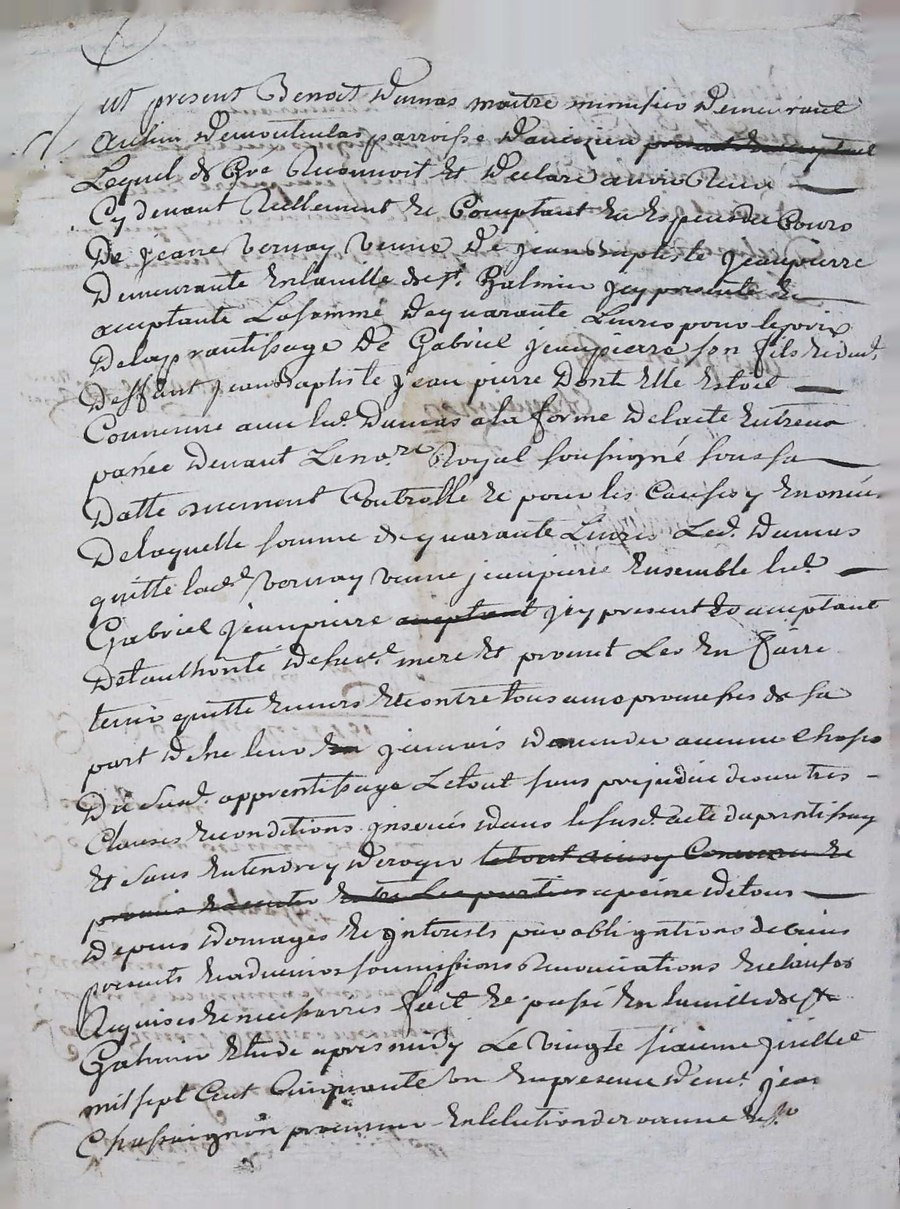 fut present Benoit Dumas maitre menuisier demeurant
au lieu de parroisse d'aveizieu
Lequel de Gré Reconnoit et declare avoir Receu
Cy devant Reellement et Comptant en Especes du Cours
De jeanne vernay veuve de jean Baptiste jeanpierre
Demeurante En la ville de St. Galmier jcy presente et
acceptante La somme de quarante Livres pour le prix
De laprantissage De Gabriel jeanpierre son fils et dud.t
Deffunt jean Baptiste jeanpierre Dont Elle Estoit
Convenue avec led. Dumas a la forme de lacte Entreux
passée Devant Le no.re Royal soussigné sous sa
Datte duement Controllé et pour les Causes y Enoncées
De laquelle somme de quarante Livres Led. Dumas
quitte lad.e vernay veuve jeanpierre Ensemble led.
Gabriel jeanpierre acceptant jcy present et acceptant
De lauthorité de sad.e mere et promet Les En faire
tenir quitte Envers et contre tous avec promesses de sa
part de ne leur En jamais demander aucune chose
Du susd. apprentissage Le tout sans prejudice des autres
Clauses et conditions jnserées dans le susd. acte daprentissage
Et sans Entendre y deroger le tout ainsy Convenu et
promis Executer Entre Les parties a peine de tous
Depens Domages et jnterests par obligations de biens
presents et advenir soumissions Renonciations et clauses
Requises et necessaires fait et passé En la ville de St
Galmier Etude apres midy Le vingt sixieme juillet
mil sept Cent Cinquante un En presence de m.e jean
Chassaignon procureur En lelection de roanne et Sr